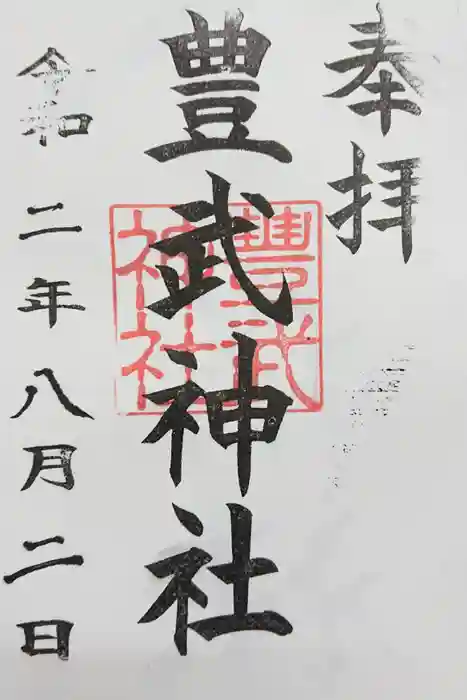 奉拝
豊武神社
豊武神社
令和二年八月二日